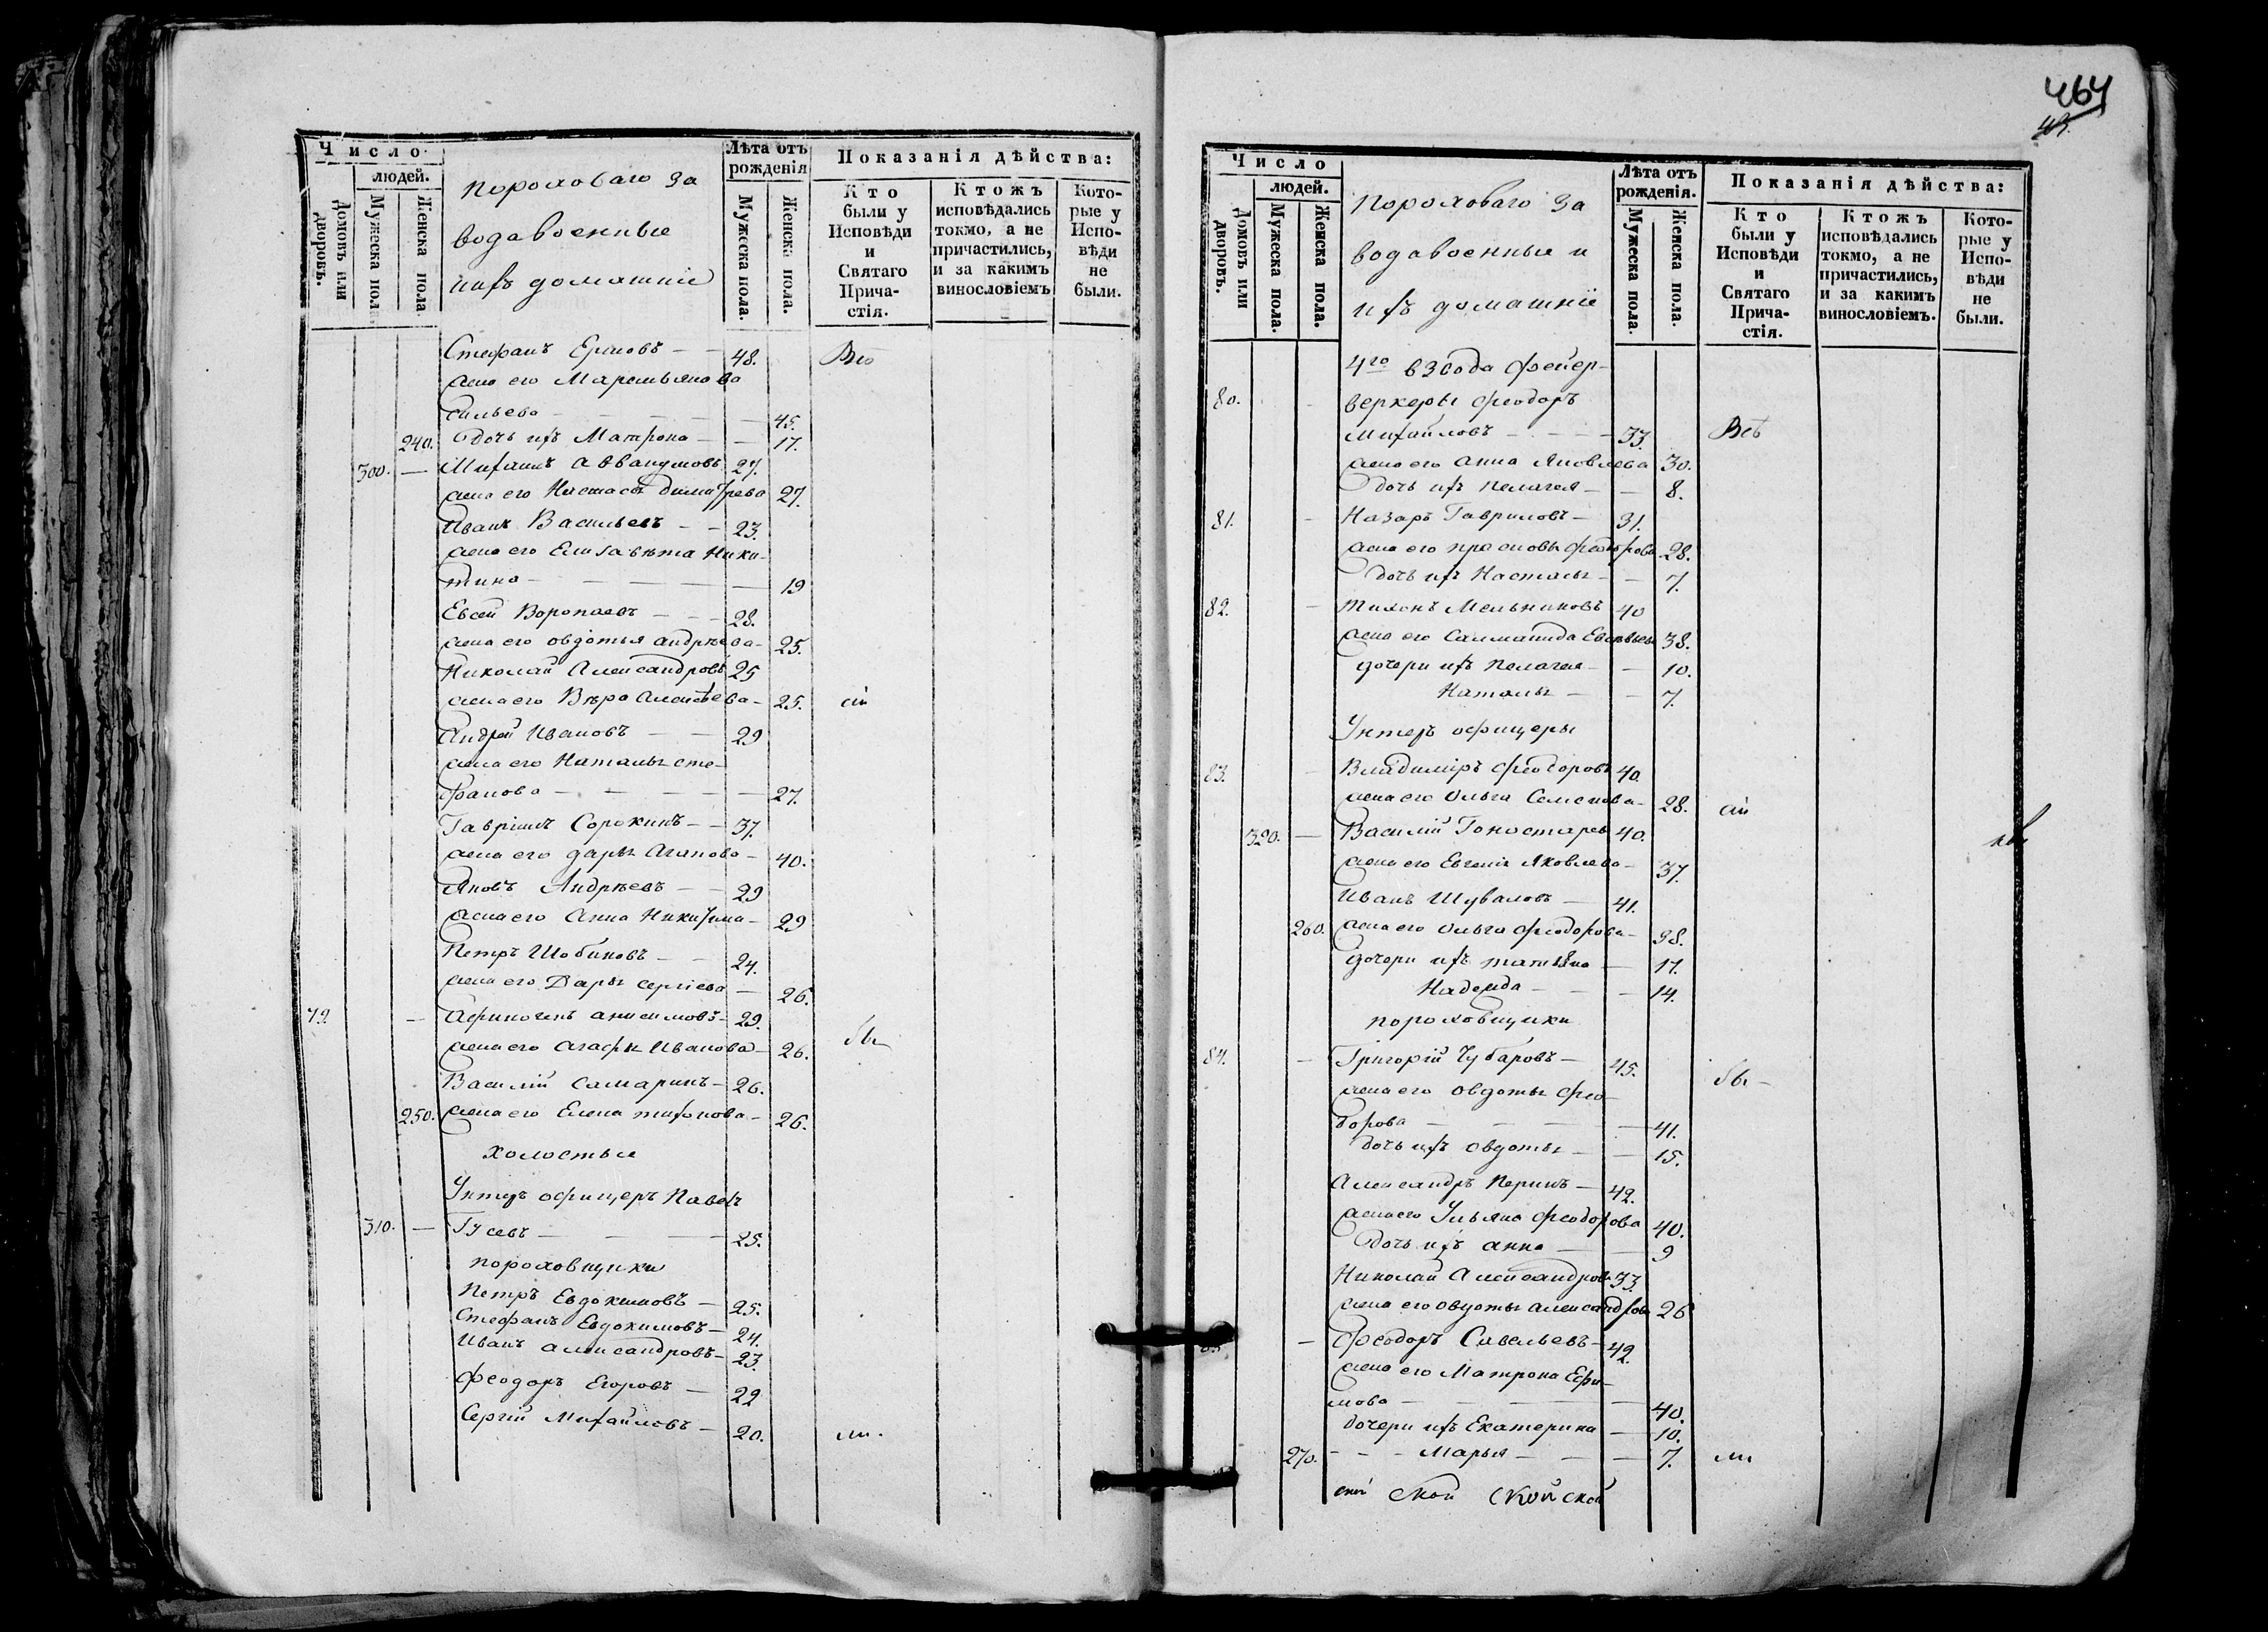 Число
людей.
Домовъ или дворовъ.
Мужеска пола.
Женска пола
пороховаго за
водавоенные
ихъ домашніе
Лѣта отъ рожденія
Мужеска пола.
Женска пола.
Показанія дѣйства:
Кто были у Исповѣди и Святаго Причастія.
Ктожъ исповѣдались токмо, а не причастились, и за какимъ винословіемъ
Которые у Исповѣди не были.
Стефанъ Ермовъ — 48. Всѣ
жена его Маремьяна Ва
сильева — 45.
240. дочь ихъ Матрона — 17.
300. — Михаилъ Аввакумовъ 27.
жена его Настасья димитрева 27.
Иванъ Васильевъ — 23.
жена его Елисавѣта Ники-
тина — 19
Евсей Воропаевъ — 28.
жена его овдотья андрѣева — 25.
Николай Александровъ 25
жена его Вѣра Алексѣева — 25. сіи
Андрей Ивановъ — 29
жена его Наталья сте-
фанова — 27.
Гаврiилъ Сорокинъ — 37.
жена его дарья Агапова — 40.
Яковъ Андрѣевъ — 29
жена его Анна Никитина — 29
Петръ Шобановъ — 24.
жена его Дарья сергіева — 26.
79. — Афиногенъ анисимовъ — 29. бы
жена его агафья Иванова — 26.
Василій Самаринъ — 26.
250. жена его Елена тихонова — 26.
холостые
Унтеръ офицеръ Павелъ
310. — Гусевъ — 25.
пороховщики
Петръ Евдокимовъ — 25.
Стефанъ Евдокимовъ — 24.
Иванъ александровъ — 23.
Феодоръ Егоровъ — 22
Сергій Михайловъ — 20. ли.
464
Число
людей.
Домовъ или дворовъ.
Мужеска пола.
Женска пола.
пороховаго за
водавоенные и
ихъ домашніе
Лѣта отъ рожденія.
Мужеска пола.
Женска пола.
Показанія дѣйства:
Кто были у Исповѣди и Святаго Причастія.
Ктожъ исповѣдались токмо, а не причастились, и за какимъ винословіемъ.
Которые у Исповѣди не были.
4го взвода фейер-
80. веркеры Феодоръ
Михайловъ — 33. Всѣ
жена его анна Яковлева 30.
дочь ихъ пелагея — 8.
81. — Назаръ Гавриловъ — 31.
жена его прасковья феодорова 28.
дочь ихъ Настасья — 7.
82. — тихонъ Мельниковъ 40
жена его 38.
дочери ихъ пелагея — 10.
Наталья — 7.
Унтеръ офицеры
83. — Владимиръ Феодоровъ 40.
жена его Ольга Семенова — 28. сіи
320. — Василій Гоностарев 40.
жена его Евгенія Яковлева — 37.
Иванъ Шуваловъ — 41.
260. жена его ольга феодорова — 38.
дочери ихъ татьяна — 17.
Надежда — 14.
пороховщики
84. — Григорій Чубаровъ — 45. бы —
жена его овдотья фео-
дорова — 41.
дочь ихъ овдотья — 15.
Александръ Перинъ — 42.
жена его Ульяна феодорова 40.
дочь ихъ анна — 9
Николай Александровъ 33.
жена его овдотья александрова 26
85. — Феодоръ Савельевъ — 42.
жена его Матрона Ефи-
мова — 40.
дочери ихъ Екатерина — 10.
270. — Марья — 7. ли
ской ской ской